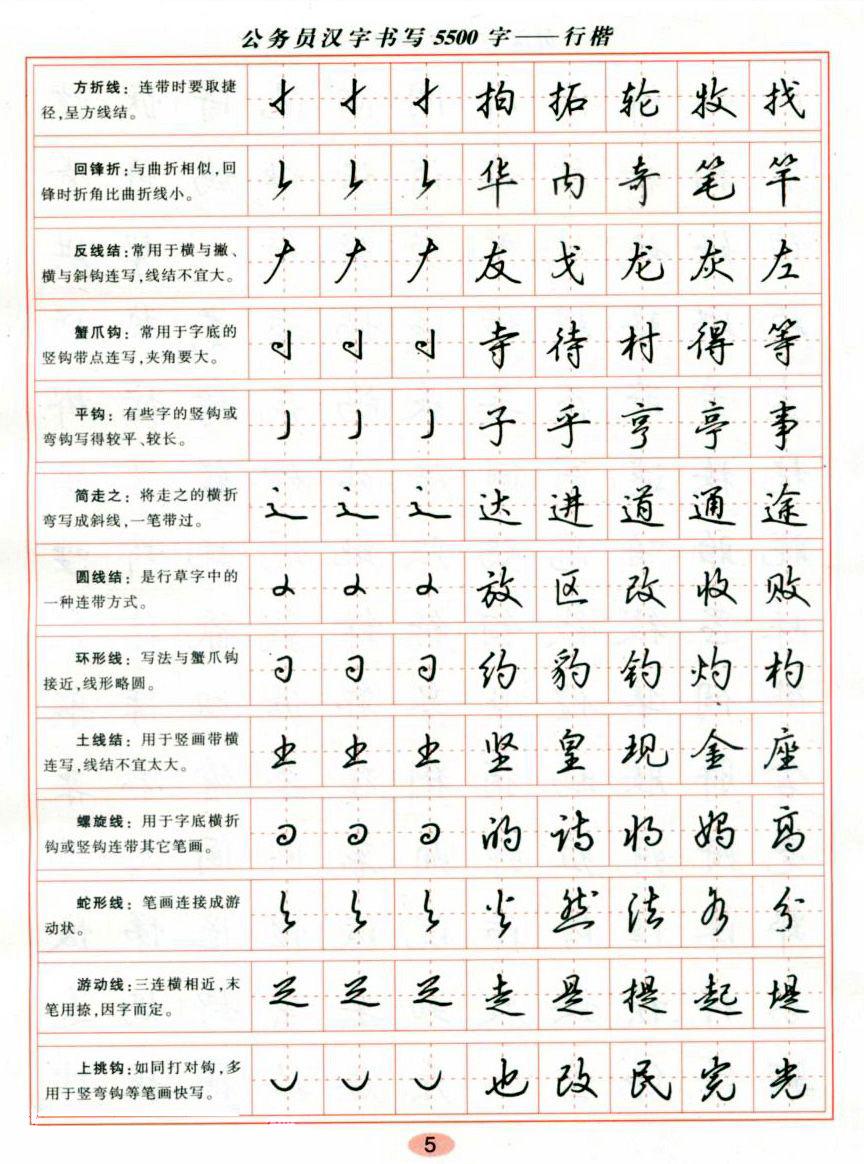 公务员汉字书写 5500 字——行楷
方折线：连带时要取捷
径,呈方线结。
拍 拓 轮 牧 找
回锋折：与曲折相似,回
锋时折角比曲折线小。
华 内 奇 笔 竿
反线结：常用于横与撇、
横与斜钩连写,线结不宜大。
友 戈 龙 灰 左
蟹爪钩：常用于字底的
竖钩带点连写,夹角要大。
寺 待 村 得 等
平钩：有些字的竖钩或
弯钩写得较平、较长。
子 乎 亨 亭 事
简走之：将走之的横折
弯写成斜线,一笔带过。
辶 辶 辶 达 进 道 通 途
圆线结：是行草字中的
一种连带方式。
放 区 改 收 败
环形线：写法与蟹爪钩
接近,线形略圆。
约 豹 钓 灼 杓
土线结：用于竖画带横
连写,线结不宜太大。
土 土 土 坚 皇 现 金 座
螺旋线：用于字底横折
钩或竖钩连带其它笔画。
的 诗 妈 高
蛇形线：笔画连接成游
动状。
然 法 分
游动线：三连横相近,末
笔用捺,因字而定。
走 是 提 起 堤
上挑钩：如同打对钩,多
用于竖弯钩等笔画快写。
也 改 民 完 光
5